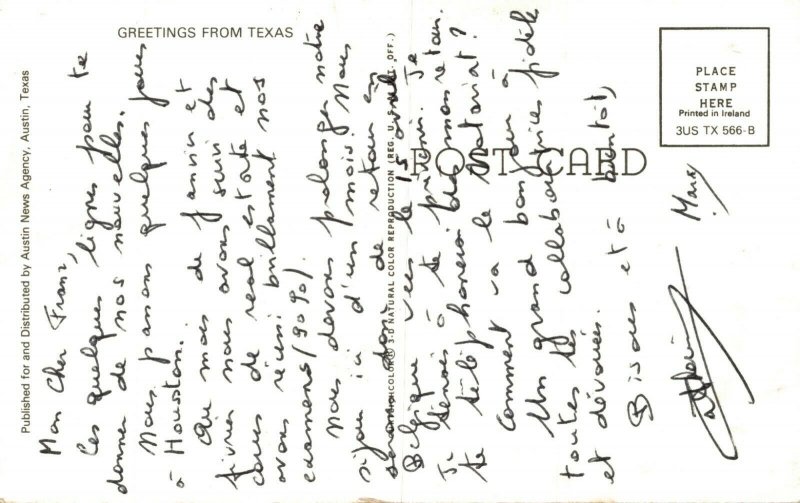 GREETINGS FROM TEXAS
Published for and Distributed by Austin News Agency, Austin, Texas
POST CARD
PLACE
STAMP
HERE
Printed in Ireland
3US TX 566-B
NATURAL COLOR REPRODUCTION (REG. U.S. PAT. OFF.)
Mon Cher Franz,
Ces quelques lignes pour te
donner de nos nouvelles.
Nous passons quelques jours
à Houston.
Au mois de Janvier et
février nous avons suivi des
cours de real estate et
avons réussi brillamment nos
examens (90%).
Nous devons prolonger notre
séjour ici d'un mois. Nous
serons donc de retour en
Belgique vers le 15 avril.
Je tenais à te prévenir. Je
te téléphonerai dès mon retour.
Comment va le notariat?
Un grand bonjour à
toutes tes collaboratrices fidèles
et dévouées.
Bisous et à bientôt,
Mark